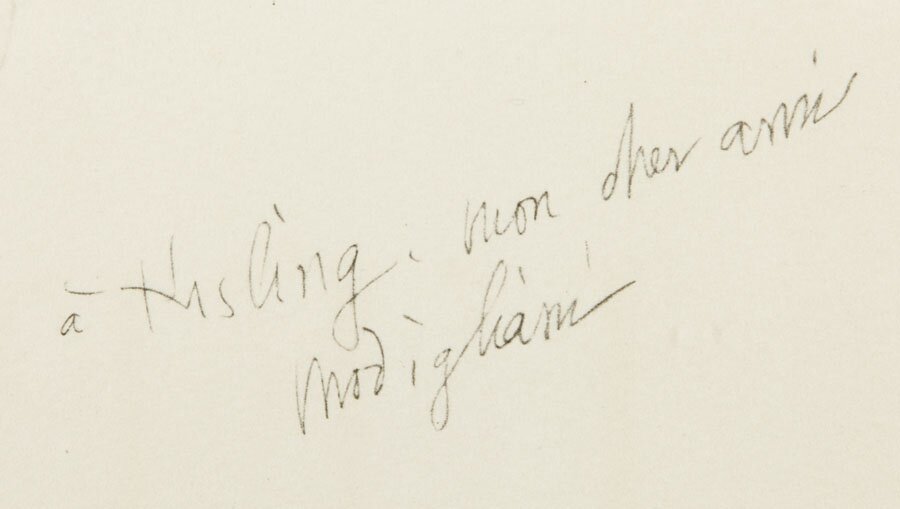 à Kisling, mon cher ami
Modigliani